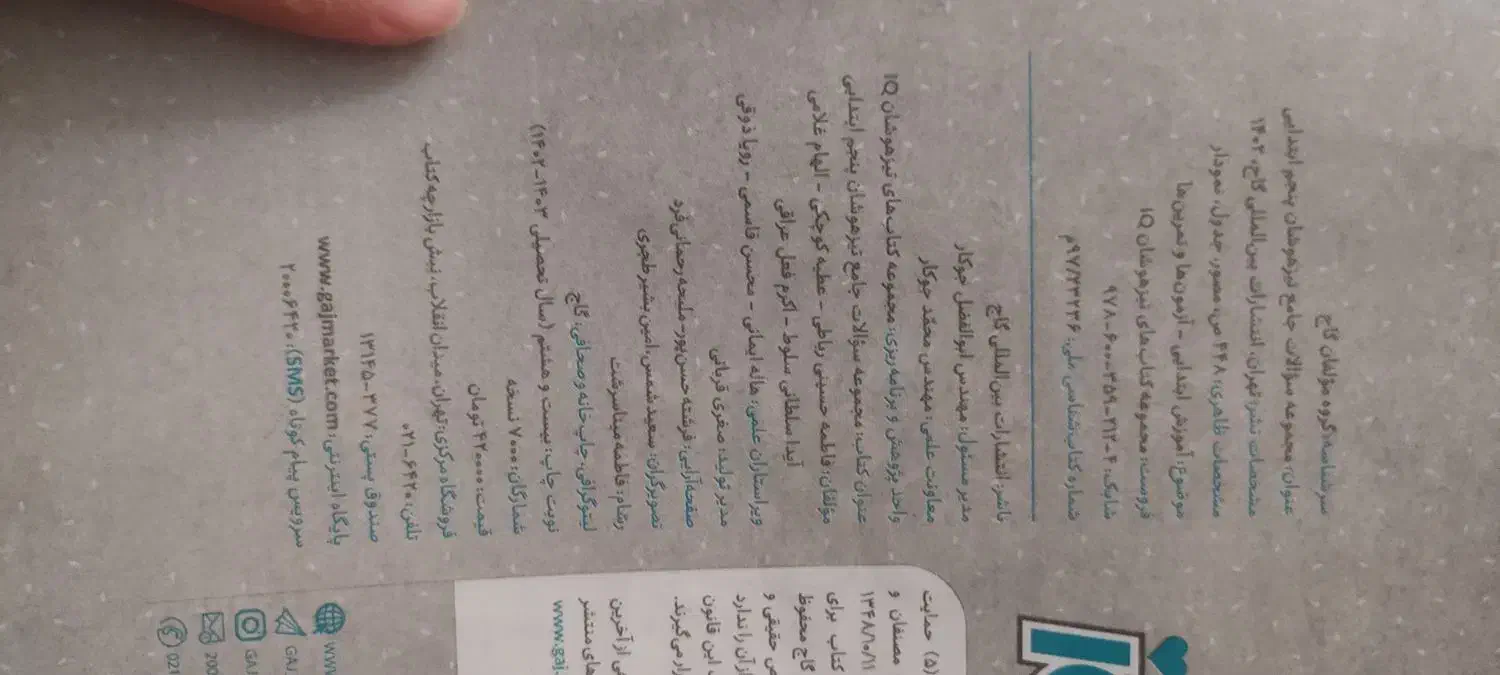 سرشناسه: گروه مؤلفان گاج
عنوان: مجموعه سؤالات جامع تیزهوشان پنجم ابتدایی
مشخصات نشر: تهران، انتشارات بین‌المللی گاج، ۱۴۰۲
مشخصات ظاهری: ۴۴۸ ص، مصور، جدول، نمودار
موضوع: آموزش ابتدایی - آزمون‌ها و تمرین‌ها
فروست: مجموعه کتاب‌های تیزهوشان IQ
شابک: ۴-۲۱۲-۳۵۹-۶۰۰-۹۷۸
شماره کتاب‌شناسی ملی: ۹۷/۷۳۲۳۶م
ناشر: انتشارات بین‌المللی گاج
مدیر مسئول: مهندس ابوالفضل جوکار
معاونت علمی: مهندس محمّد جوکار
واحد پژوهش و برنامه‌ریزی: مجموعه کتاب‌های تیزهوشان IQ
عنوان کتاب: مجموعه سؤالات جامع تیزهوشان پنجم ابتدایی
مؤلفان: فاطمه حسینی رباطی - عطیه کوچکی - الهام غلامی
آیدا سلطانی سلوط - اکرم فعل عراقی
ویراستاران علمی: هاله ایمانی - محسن قاسمی - رویا ذوقی
مدیر تولید: صغری قربانی
صفحه‌آرایی: فرشته حسن‌پور - ملیحه رحمانی‌فرد
تصویرگران: سعید شمس، امین بشیر طجری
رسّام: فاطمه میناسرشت
لیتوگرافی، چاپ‌خانه و صحافی: گاج
نوبت چاپ: بیست و هشتم (سال تحصیلی ۱۴۰۳-۱۴۰۲)
شمارگان: ۷۰۰۰ نسخه
قیمت: ۴۲۰۰۰۰ تومان
فروشگاه مرکزی: تهران، میدان انقلاب، نبش بازارچه کتاب
تلفن: ۶۴۲۰-۰۲۱
صندوق پستی: ۳۷۷-۱۳۱۴۵
پایگاه اینترنتی: www.gajmarket.com
سرویس پیام کوتاه (SMS): ۲۰۰۰۶۴۲۰
(۵) حمایت
مصنفان و
۱۳۴۸/۱۰/۱۱
کتاب برای
گاج محفوظ
ص حقیقی و
از آن را ندارد
، این قانون
رار می‌گیرند.
ی از آخرین
های منتشر
www.gaj.
WWW
GAJ
GA
200
021
IQ